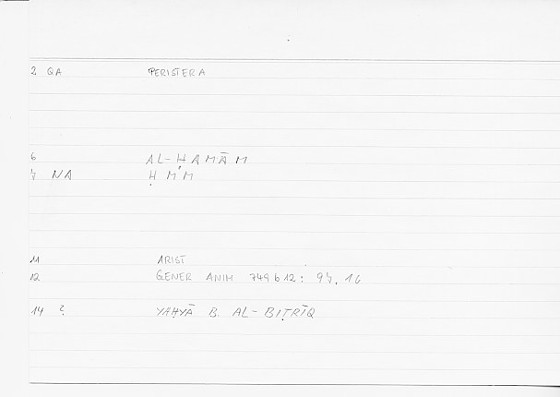 2 QA PERISTERA
6 AL-ḤAMĀM
7 NA Ḥ M M
11 ARIST
12 GENER ANIM 749b12: 97, 16
14 ? YAḤYĀ B. AL-BIṬRĪQ